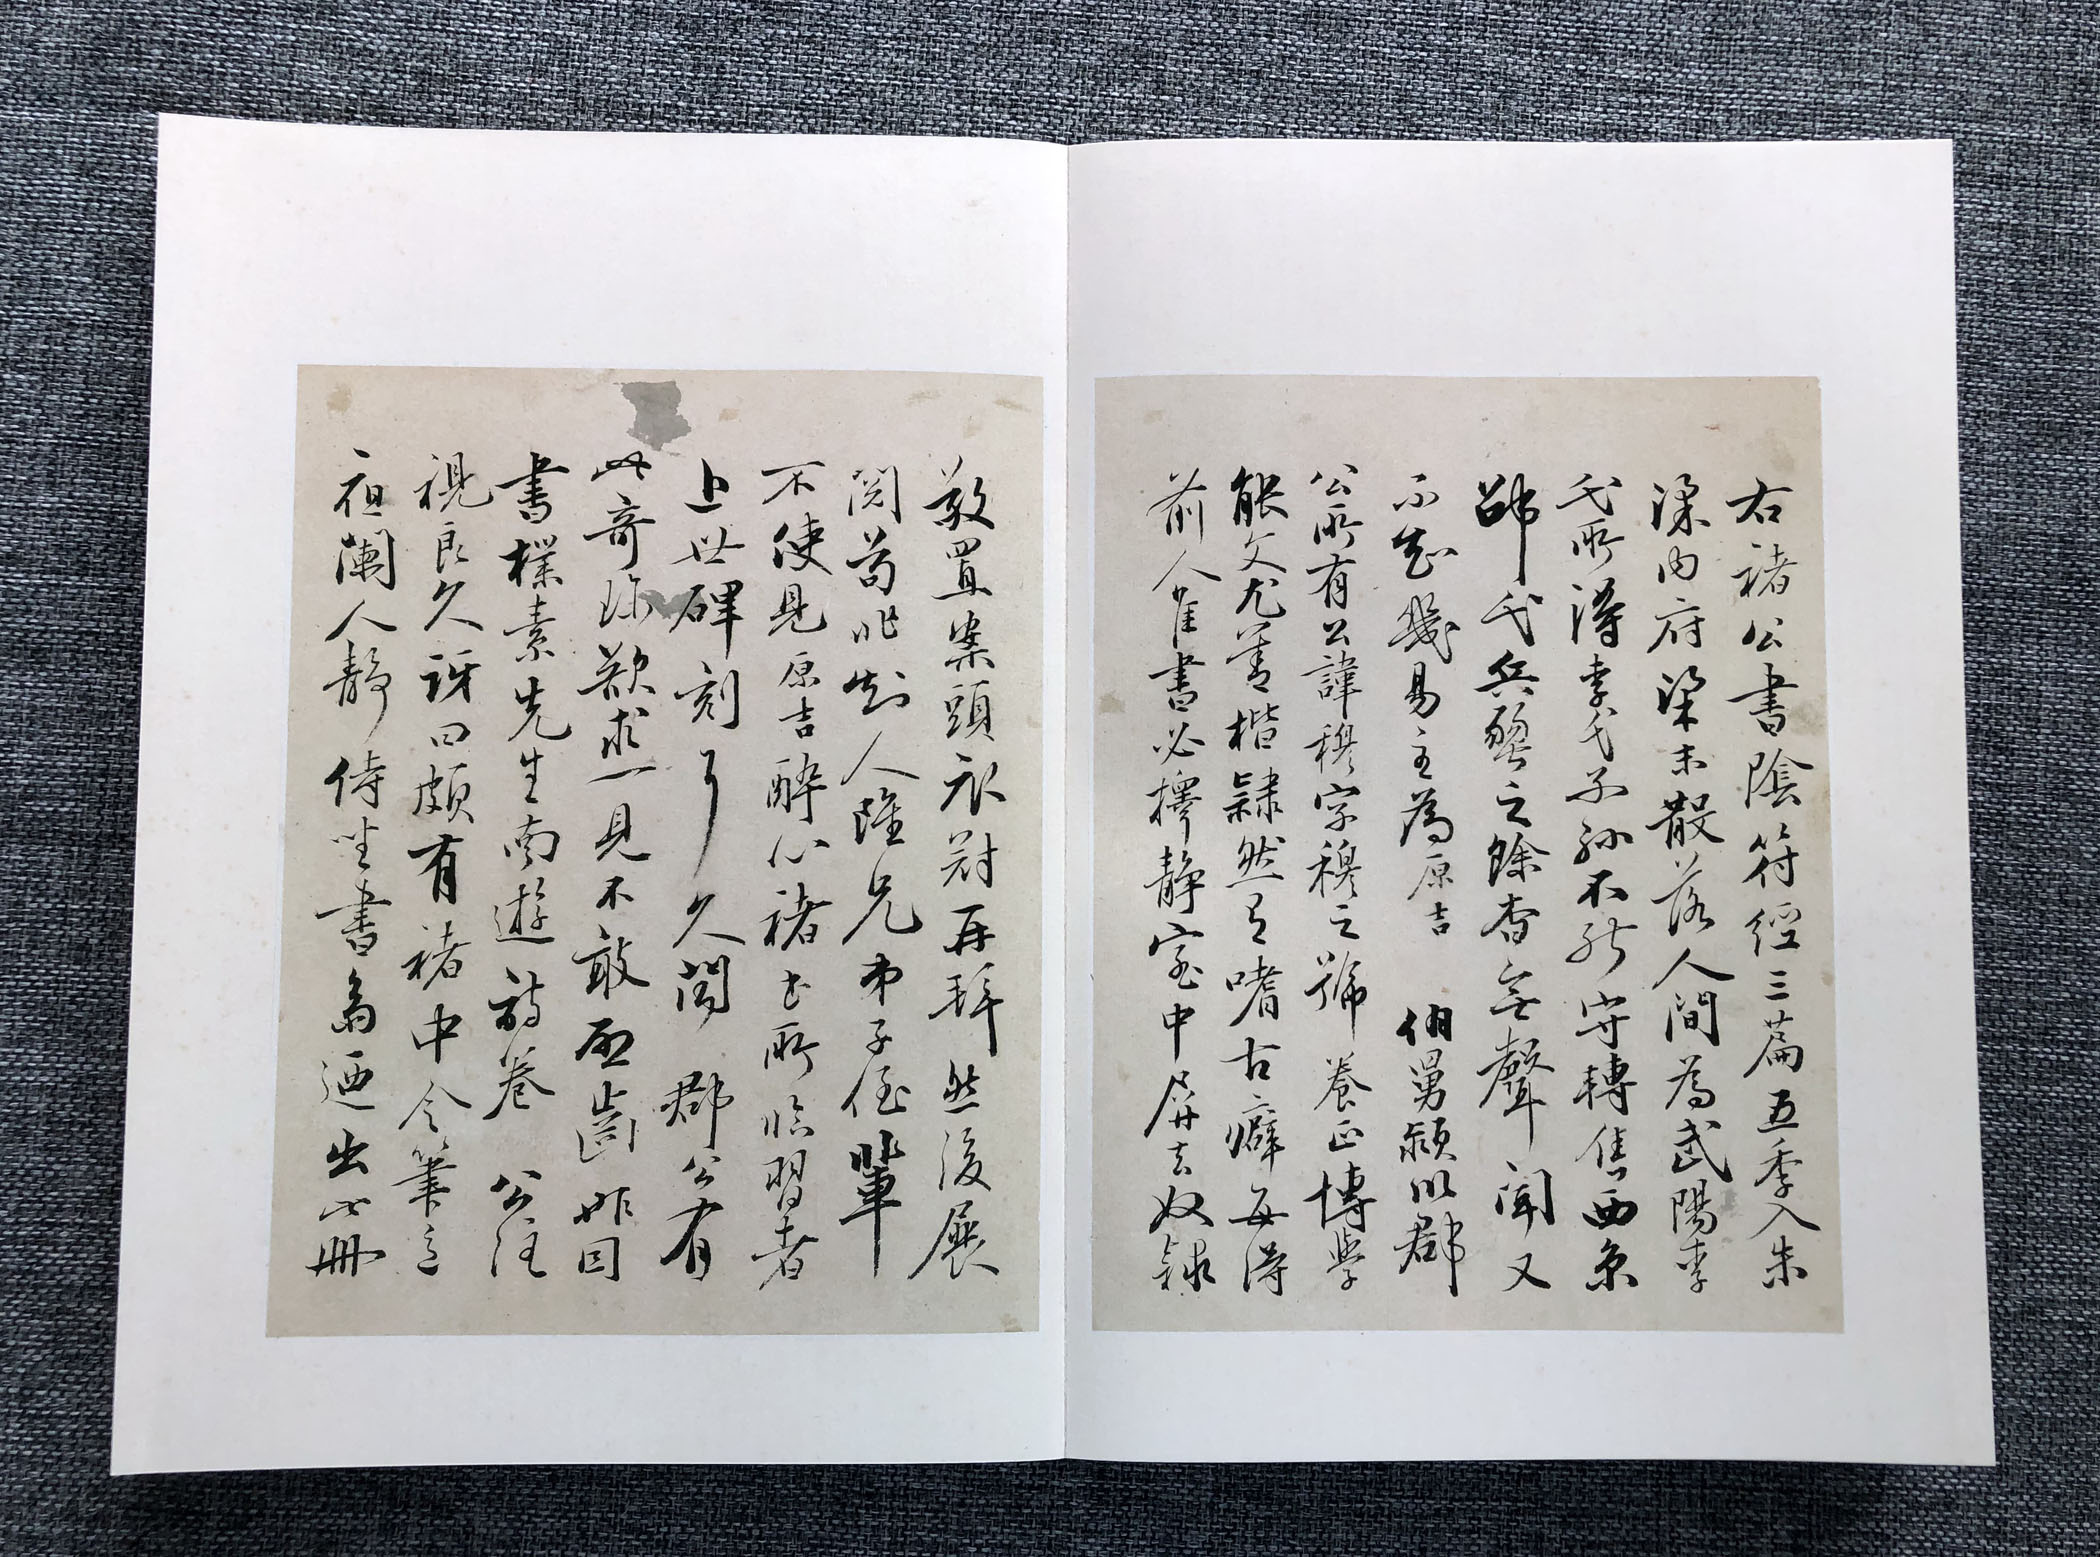 右褚公書陰符經三篇五季入朱
梁内府梁末散落人間為武陽李
氏所得李氏子孫不能守轉售西京
邵氏兵燹之餘杳無聲聞又
不知幾易主為原吉伯舅潁川郡
公所有公諱穆字穆之號養正博學
能文尤善楷隸然又嗜古癖每得
前人隹書必擇靜室中屏去奴隸
敬置案頭衣冠再拜然後展
閱苟非知人雖兄弟子侄輩
不使見原吉醉心褚書所臨習者
上世碑刻耳久聞郡公有
此奇珍欲求一見不敢啟齒昨因
書樸素先生南遊詩卷公往
視良久訝曰頗有褚中令筆意
夜闌人靜侍坐書烏迺出此冊